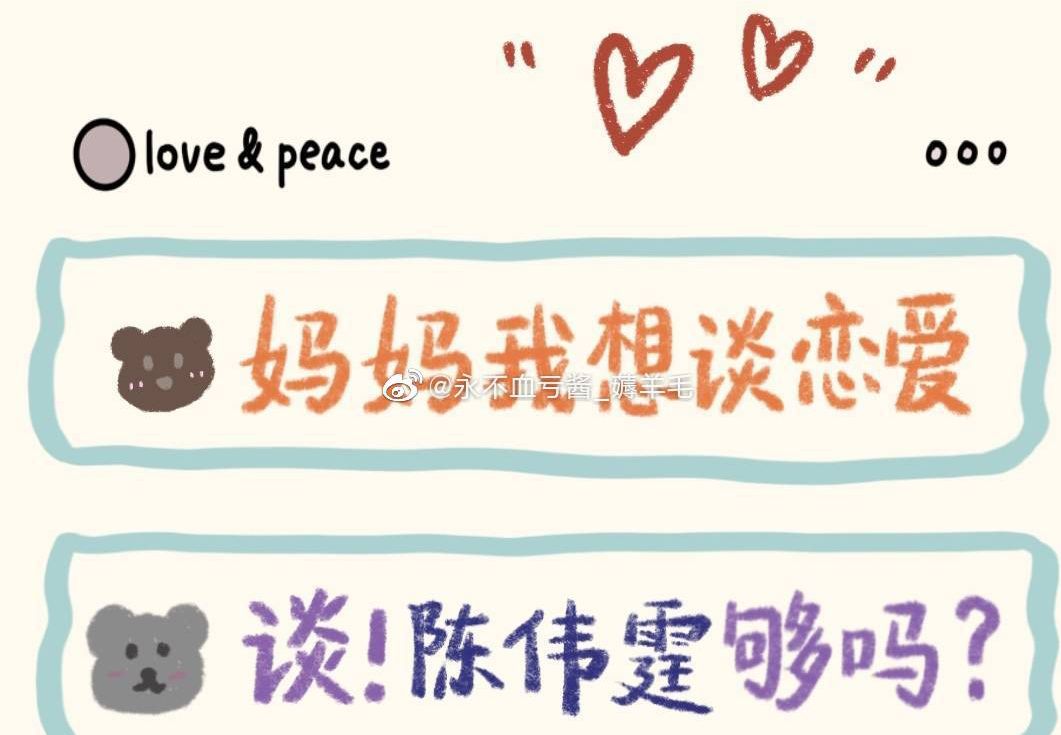 love & peace
妈妈我想谈恋爱
@永不血亏酱_薅羊毛
谈!陈伟霆够吗?